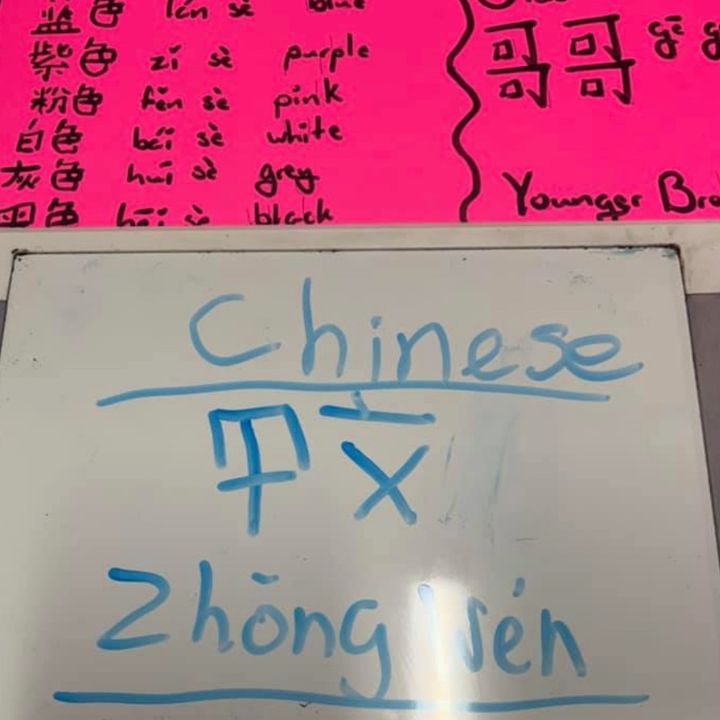 蓝色 lán sè blue
紫色 zí sè purple
粉色 fěn sè pink
白色 bái sè white
灰色 huī sè grey
黑色 hēi sè black
哥哥 gē g
Younger Bro
Chinese
中文
Zhōng Wén